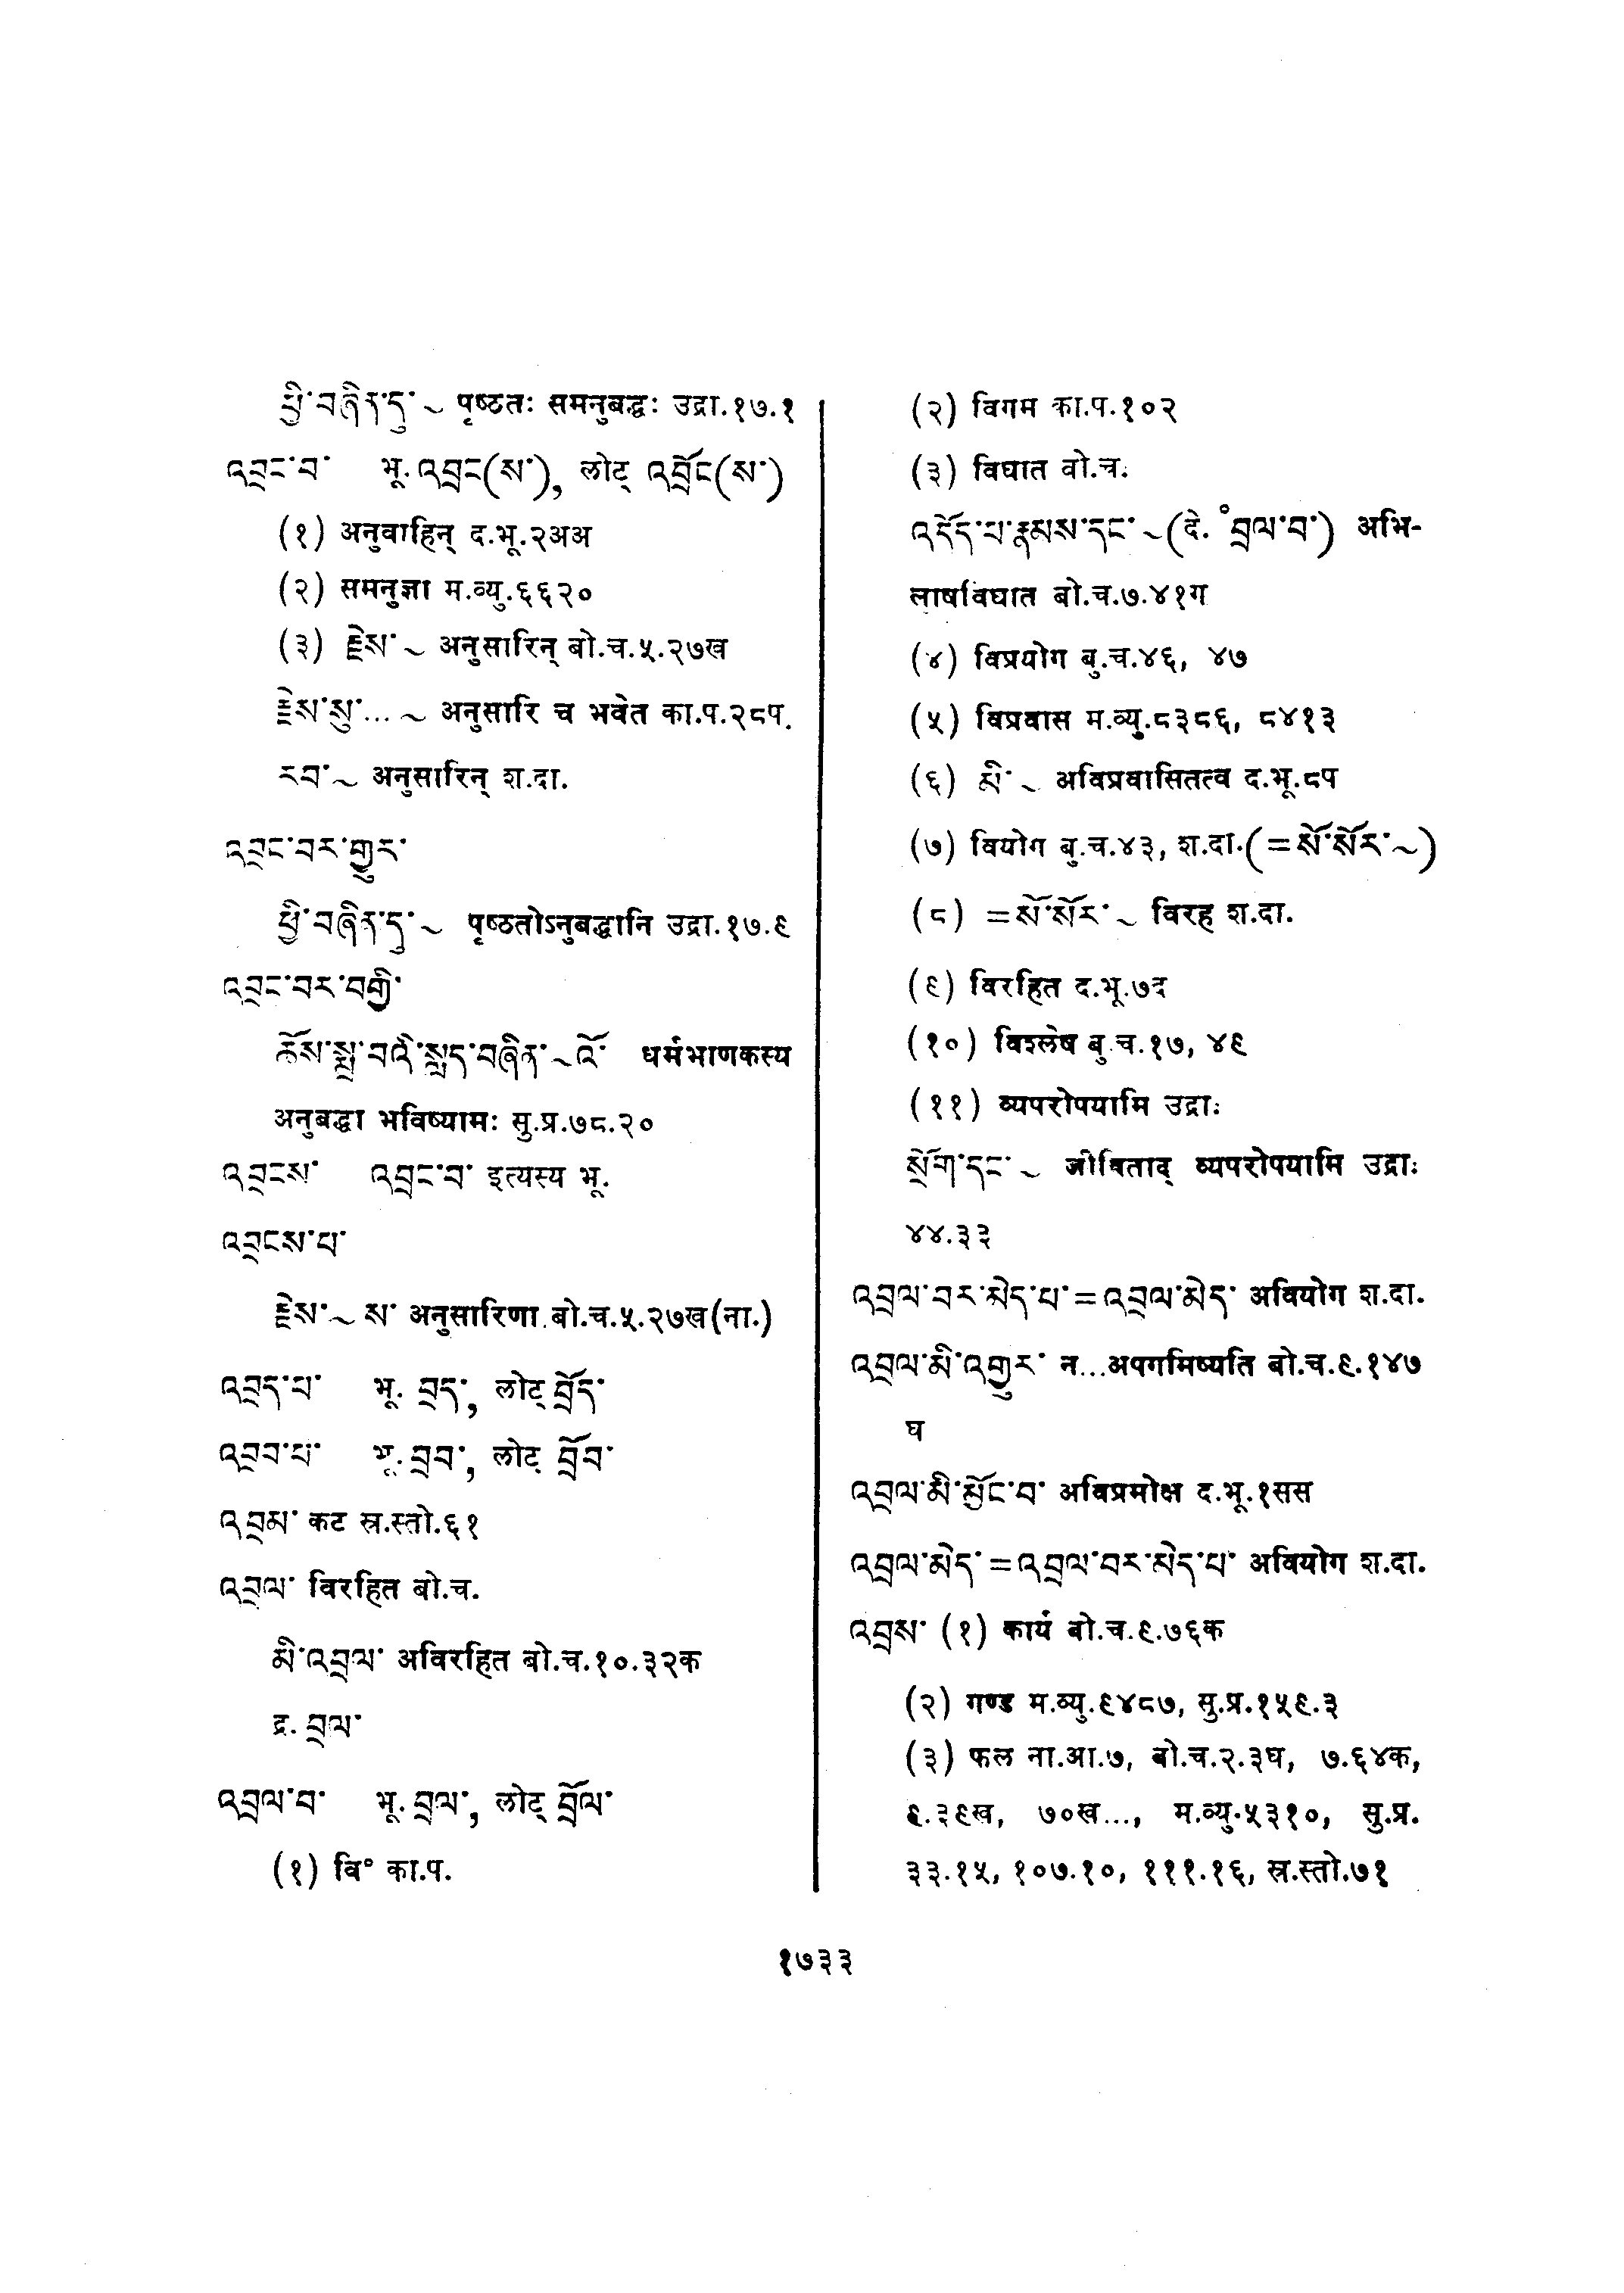 ཕྱི་བཞིན་དུ་ ~ पृष्ठतः समनुबद्धः उद्रा.१७.१
འབྲང་བ་ भू. འབྲང(ས་), लोट् འབྲོང(ས་)
(१) अनुवाहिन् द.भू.२अअ
(२) समनुज्ञा म.व्यु.६६२०
(३) རྗེས་ ~ अनुसारिन् बो.च.५.२७ख
རྗེས་སུ་... ~ अनुसारि च भवेत का.प.२८प.
རབ་ ~ अनुसारिन् श.दा.
འབྲང་བར་གྱུར་
ཕྱི་བཞིན་དུ་ ~ पृष्ठतोऽनुबद्धानि उद्रा.१७.९
འབྲང་བར་བགྱི་
ཆོས་སྨྲ་བའི་སླད་བཞིན་ ~ འོ་ धर्मभाणकस्य
अनुबद्धा भविष्यामः सु.प्र.७८.२०
འབྲངས་ འབྲང་བ་ इत्यस्य भू.
འབྲངས་པ་
རྗེས་ ~ ས་ अनुसारिणा बो.च.५.२७ख(ना.)
འབྲད་པ་ भू. བྲད་, लोट् བྲོད་
འབྲབ་པ་ भू. བྲབ་, लोट् བྲོབ་
འབྲམ་ कट स्र.स्तो.६१
འབྲལ་ विरहित बो.च.
མི་འབྲལ་ अविरहित बो.च.१०.३२क
द्र. བྲལ་
འབྲལ་བ་ भू. བྲལ་, लोट् བྲོལ་
(१) वि° का.प.
(२) विगम का.प.१०२
(३) विघात बो.च.
འདོད་པ་རྣམས་དང་ ~ (दे. °བྲལ་བ་) अभि-
लाषविघात बो.च.७.४१ग
(४) विप्रयोग बु.च.४६, ४७
(५) विप्रवास म.व्यु.८३८६, ८४१३
(६) མི་ ~ अविप्रवासितत्व द.भू.८प
(७) वियोग बु.च.४३, श.दा.(=སོ་སོར་ ~)
(८) =སོ་སོར་ ~ विरह श.दा.
(९) विरहित द.भू.७द
(१०) विश्लेष बु.च.१७, ४९
(११) व्यपरोपयामि उद्राः
སྲོག་དང་ ~ जीविताद् व्यपरोपयामि उद्राः
४४.३३
འབྲལ་བར་མེད་པ་=འབྲལ་མེད་ अवियोग श.दा.
འབྲལ་མི་འགྱུར་ न...अपगमिष्यति बो.च.९.१४७
घ
འབྲལ་མི་མྱོང་བ་ अविप्रमोक्ष द.भू.१सस
འབྲལ་མེད་=འབྲལ་བར་མེད་པ་ अवियोग श.दा.
འབྲས་ (१) कार्य बो.च.९.७६क
(२) गण्ड म.व्यु.९४८७, सु.प्र.१५९.३
(३) फल ना.आ.७, बो.च.२.३घ, ७.६४क,
९.३९ख, ७०ख..., म.व्यु.५३१०, सु.प्र.
३३.१५, १०७.१०, १११.१६, स्र.स्तो.७१
१७३३